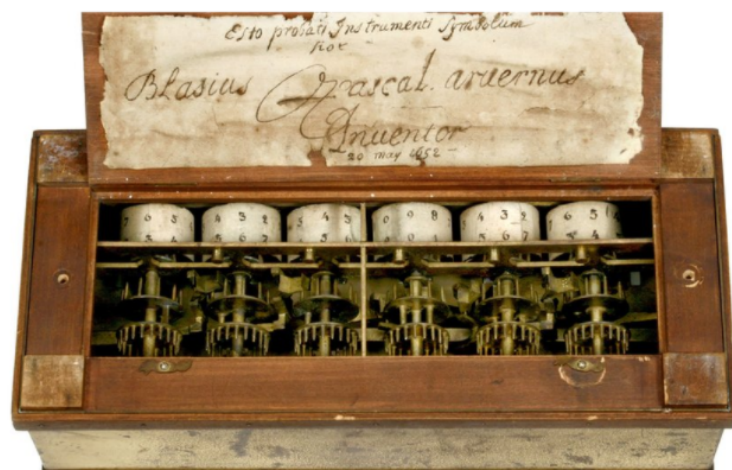 Esto probati Instrumenti Symbolum
hoc
Blasius Pascal. arvernus
Inventor
20 may 1652
7 6 5 4 3 2 5 4 3 0 9 8 4 3 2 7 6 5
3 4 5 6 7 5 6 0 1 5 6 7 3 4